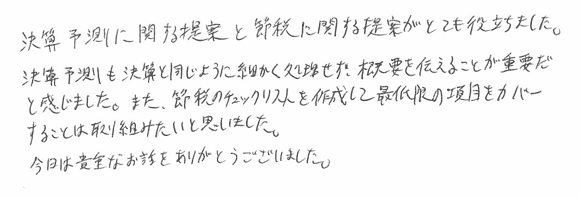 決算予測に関する提案と節税に関する提案がとても役立ちました。
決算予測も決算と同じように細かく処理せず、概要を伝えることが重要だ
と感じました。また、節税のチェックリストを作成して最低限の項目をカバー
することは取り組みたいと思いました。
今日は貴重なお話をありがとうございました。